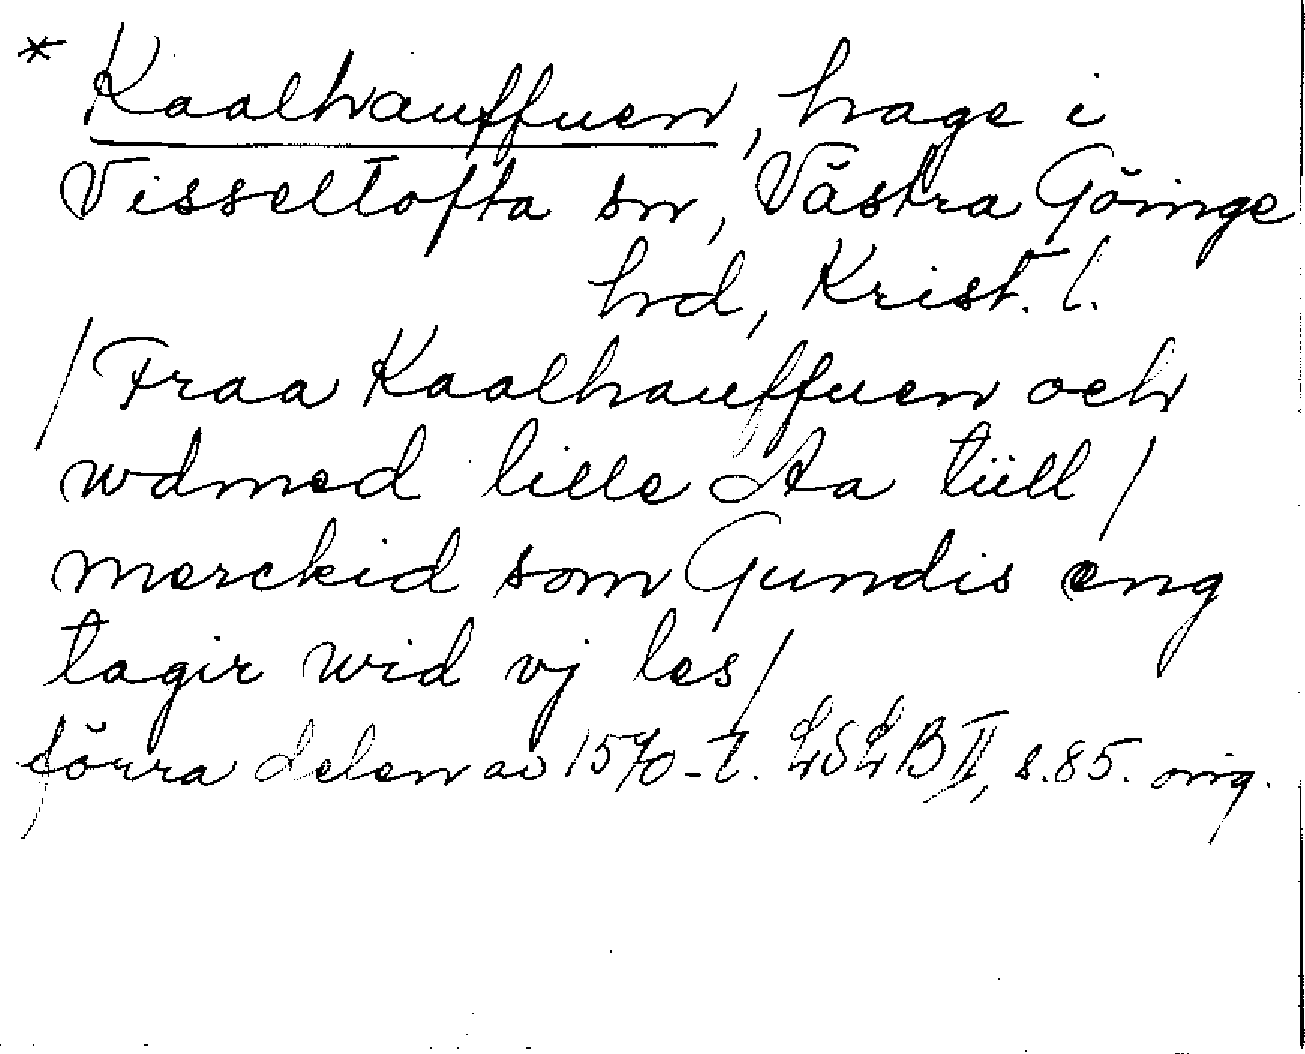 * Kaalhauffuen, hage i
Visseltofta sn, Västra Göinge
hd, Krist. l.
/ Fraa Kaalhauffuen och
wdmed lille Aa tiill /
merckid som Gundis eng
tagir wid vj les /
förra delen av 1570-t. LSLB II, s. 85. orig.